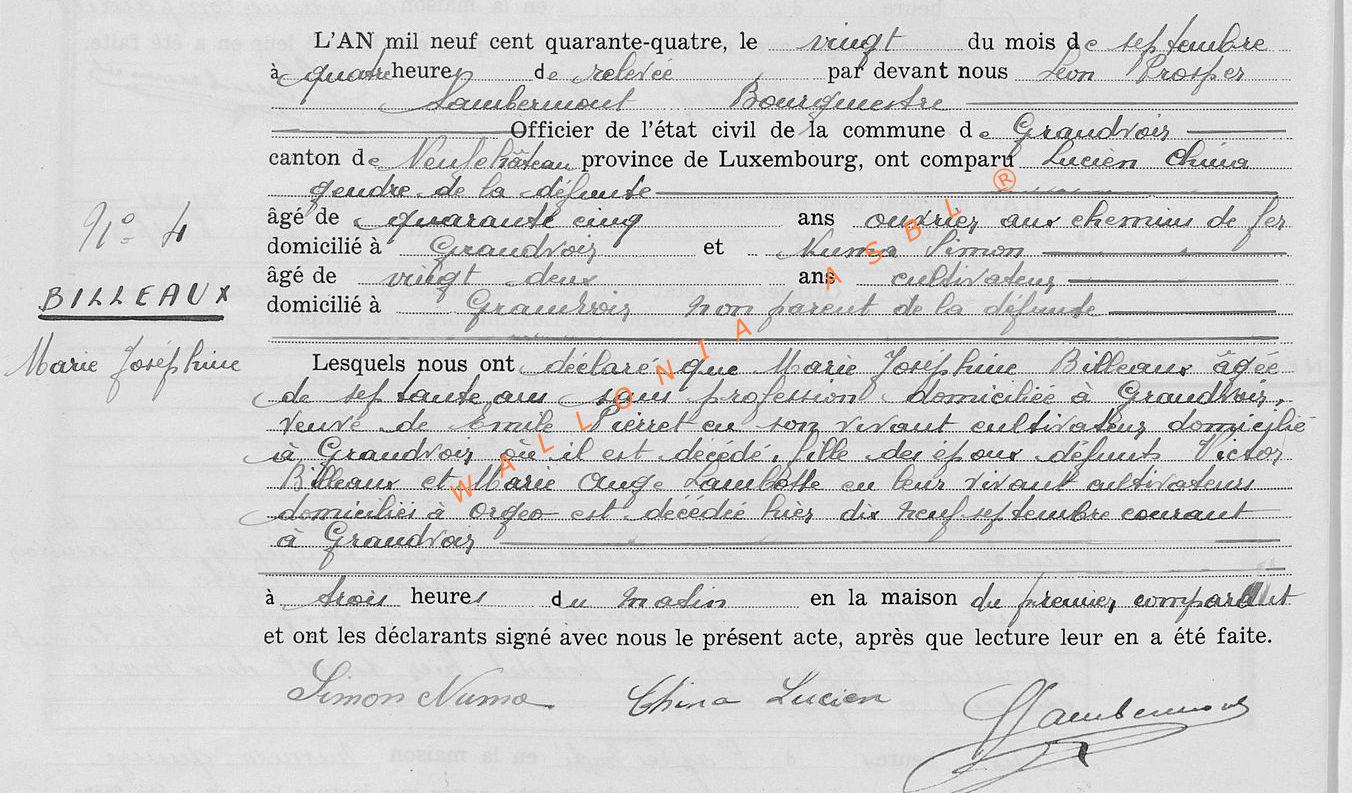 L'AN mil neuf cent quarante-quatre, le vingt du mois de septembre
à quatre heures de relevée par devant nous Léon Prosper
Lambermont Bourgmestre
Officier de l'état civil de la commune de Grandvoir
canton de Neufchâteau province de Luxembourg, ont comparu Lucien China
gendre de la défunte
N° 4
âgé de quarante cinq ans ouvrier aux chemins de fer
domicilié à Grandvoir et Numa Simon
âgé de vingt deux ans cultivateur
BILLEAUX
domicilié à Grandvoir non parent de la défunte
Marie Joséphine
Lesquels nous ont déclaré que Marie Joséphine Billeaux âgée
de septante ans sans profession domiciliée à Grandvoir,
veuve de Emile Pierret en son vivant cultivateur domicilié
à Grandvoir où il est décédé, fille des époux défunts Victor
Billeaux et Marie Ange Lambotte en leur vivant cultivateurs
domiciliés à Orgeo est décédée hier dix neuf septembre courant
à Grandvoir
à trois heures du matin en la maison du premier comparant
et ont les déclarants signé avec nous le présent acte, après que lecture leur en a été faite.
Simon Numa China Lucien Lambermont
WALLONIA ASBL ®